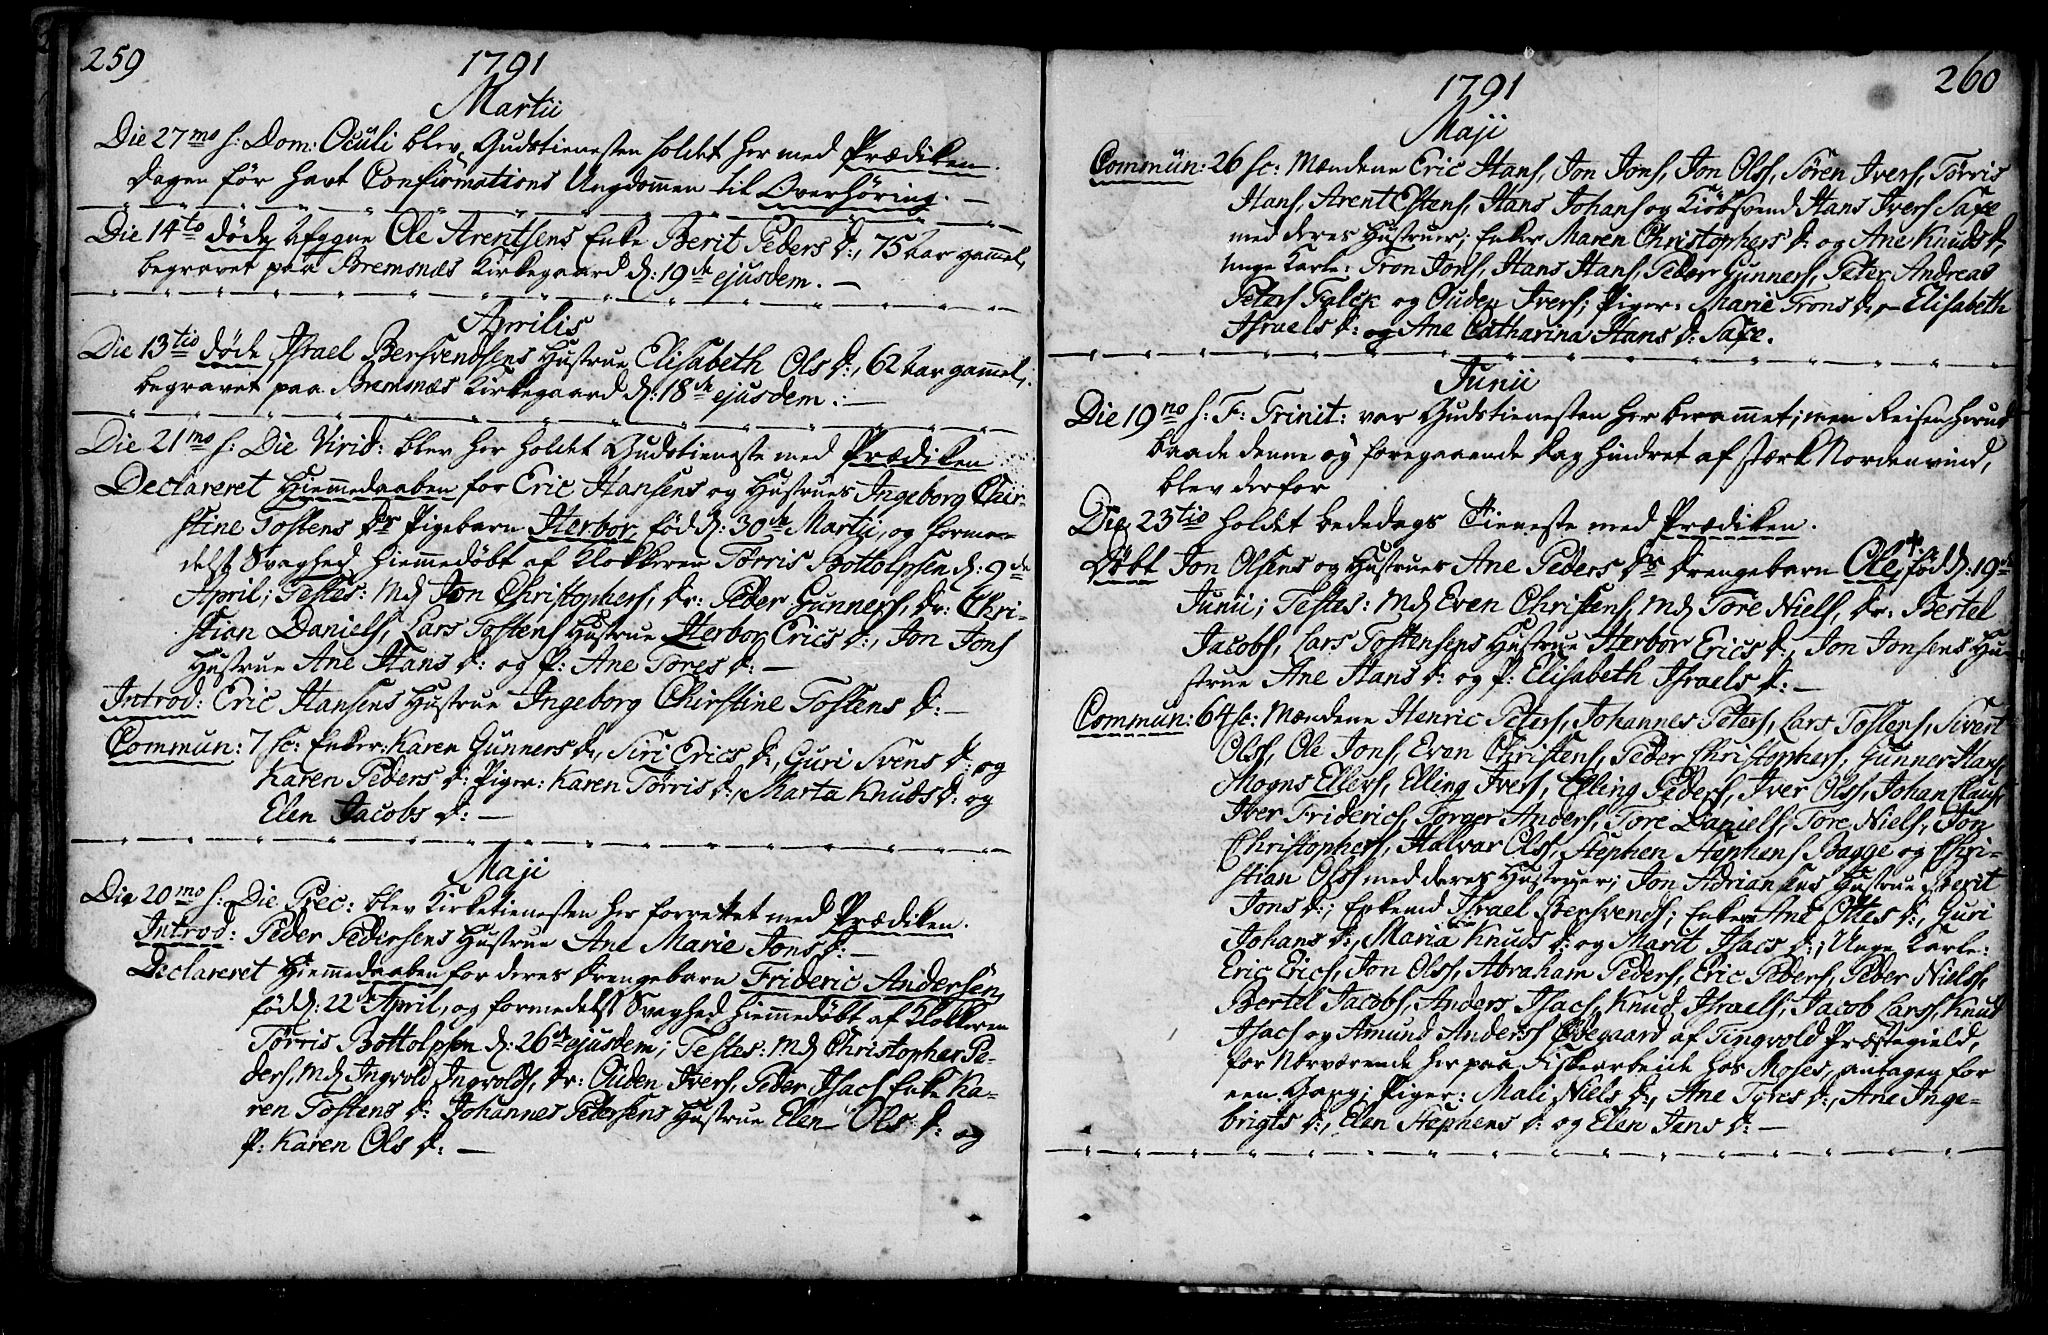 259
1791
Martii
Die 27mo s: Dom: Oculi blev Gudstienesten holdet her med Prædiken.
Dagen før havt Confirmations Ungdommen til Overhøring. —
Die 14to døde Ole Arentsens Enke Berit Peders D:, 75 Aar gammel,
begravet paa Bremsnæs Kirkegaard d: 19de ejusdem. —
Aprilis
Die 13tio døde Israel Bersvendsens Hustrue Elisabeth Ols D:, 62 Aar gammel,
begravet paa Bremsnæs Kirkegaard d: 18de ejusdem. —
Die 21mo s: Die Virid: blev her holdet Gudstieneste med Prædiken
Declareret Hiemmedaaben for Eric Hansens og Hustrues Ingeborg Chir-
stine Tostens Drs Pigebarn Herbor, fød d: 30de Martii, og forme-
delst Svaghed hiemmedøbt af Klokkeren Tørris Bottolphsen d: 9de
April; Testes: Md Jon Christophers, Dr: Peder Gunners, Dr: Chri-
stian Daniels, Lars Tostens Hustrue Herbor Erics D:, Jon Jons
Hustrue Ane Hans D: og P: Ane Tores D: —
Introd: Eric Hansens Hustrue Ingeborg Chirstine Tostens D: —
Commun: 7 sc: Enker: Karen Gunners D:, Siri Erics D:, Guri Svens D: og
Karen Peders D: Piger: Karen Tørris D:, Marta Knuds D: og
Elen Jacobs D: —
Maji
Die 20mo s: Die Prec: blev Kirketienesten her forrettet med Prædiken.
Introd: Peder Pedersens Hustrue Ane Marie Jons D: —
Declareret Hiemmedaaben for deres Drengebarn Frideric Andersen,
fød d: 22de April, og formedelst Svaghed hiemmedøbt af Klokkeren
Tørris Bottolphsen d: 26de ejusdem; Testes: Md Christopher Pe-
ders, Md Ingvold Ingvolds, Dr: Ouden Ivers, Peder Isacs Enke Ka-
ren Tostens D: Johannes Petersens Hustrue Elen Ols D: og
P: Karen Ols D: —
260
1791
Maji
Commun: 26 sc: Mændene Eric Hans, Jon Jons, Jon Ols, Søren Ivers, Tørris
Hans, Arent Estens, Hans Johans og Kiøbsvend Hans Ivers Saxe
med deres Hustruer; Enker Maren Christophers D: og Ane Knuds D:
Unge Karle: Tron Jons, Hans Hans, Peder Gunners, Peter Andreas
Peters Falck og Ouden Ivers; Piger: Marie Trons D:, Elisabeth
Israels D: og Ane Catharina Hans D: Saxe.
Junii
Die 19no s: F: Trinit: var Gudstienesten her berammet; men Reisen herud
baade denne og foregaaende Dag hindret af stærk Nordenvind,
blev derfor
Die 23tio holdet Bededags Tieneste med Prædiken.
Døbt Jon Olsens og Hustrues Ane Peders Drs Drengebarn Ole, fød d: 19de
Junii; Testes: Md Even Christens, Md Tore Niels, Dr: Bertel
Jacobs, Lars Tostensens Hustrue Herbor Erics D:, Jon Jonsens Hu-
strue Ane Hans D: og P: Elisabeth Israels D: —
Commun: 64 sc: Mændene Henric Peters, Johannes Peters, Lars Tostens, Sivert
Ols, Ole Jons, Even Christens, Peder Christophers, Gunner Hans,
Mogns Ellers, Elling Ivers, Elling Peders, Iver Ols, Johan Claus
Iver Friderics, Torger Anders, Tore Daniels, Tore Niels, Jon
Christophers, Halvar Ols, Stephen Stephens Bagge og Chri-
stian Ols med deres Hustruer; Jon Adriansens Hustrue Berit
Jons D:; Enkemd Israel Bersvends; Enker Ane Ottes D:, Guri
Johans D:, Maria Knuds D: og Marit Isacs D:; Unge Karle:
Eric Erics, Jon Ols, Abraham Peders, Eric Peders, Peder Niels,
Bertel Jacobs, Anders Isacs, Knud Israels, Jacob Lars, Knud
Isacs og Amund Anders Ødegaard af Tingvold Præstegield,
for Nærværende her paa Fiskearbeide hos Moses, antagen for
een Gang; Piger: Mali Niels D:, Ane Tores D:, Ane Inge-
brigts D:, Elen Stephens D: og Elen Jens D: —